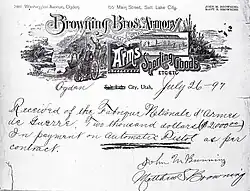 2461 Washington Avenue, Ogden
155 Main Street, Salt Lake City.
Browning Bros. Armory
Arms
Sporting Goods
ETC. ETC.
Ogden City, Utah, July 26-97
Received of the Fabrique Nationale d'Armes
de Guerre Two thousand dollars ($2000.00)
In payment on Automatic Pistol as per
contract.
John M Browning
Matthew S Browning